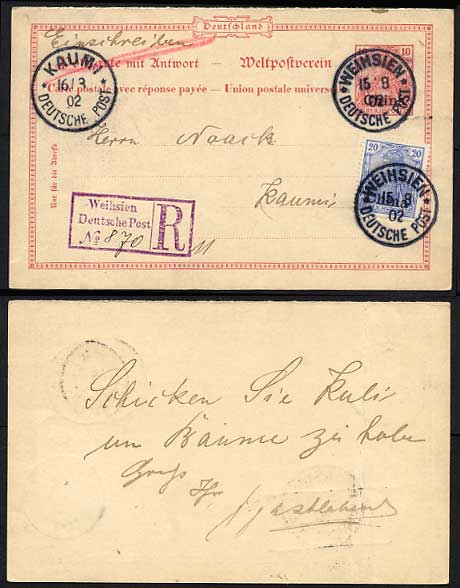 Deutschland
Einschreiben
Postkarte mit Antwort — Weltpostverein
Carte postale avec réponse payée — Union postale universelle
KAUMI
16/8
02
DEUTSCHE POST
WEIHSIEN
15 8
02
DEUTSCHE POST
10
China
Nur für die Adresse
Herrn Naack
Kaumi
20 20
China
WEIHSIEN
15 8
02
DEUTSCHE POST
Weihsien
Deutsche Post
No 870
R
Schicken Sie Kuli
um Bäume zu holen
Gruß
Ihr